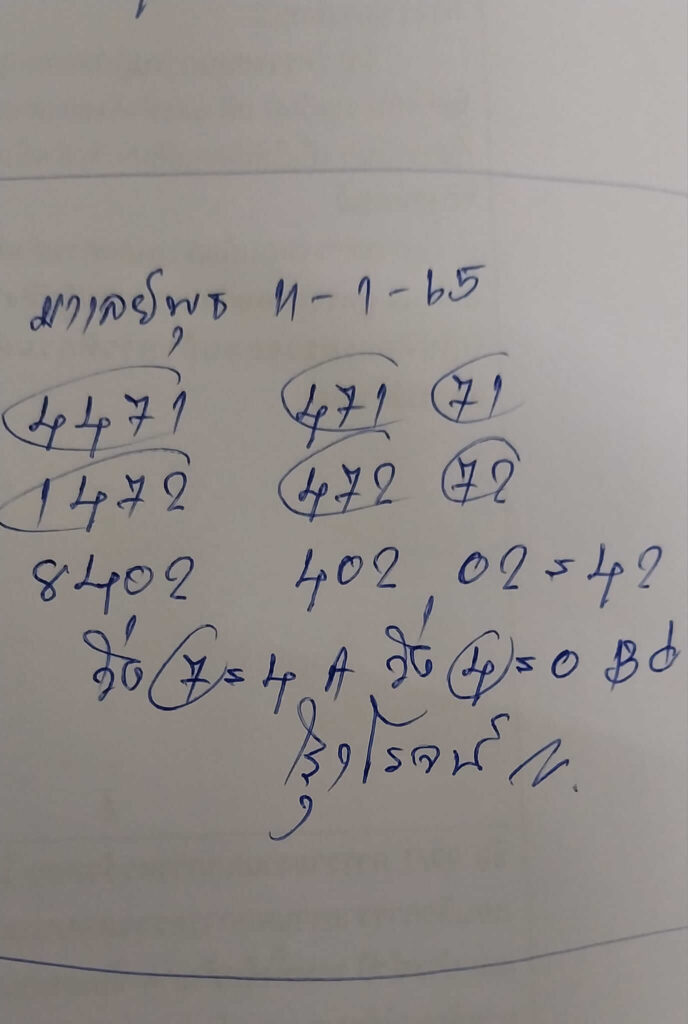 มาเลย์พุธ 11-1-65
4471 471 71
1472 472 72
8402 402 02=42
วิ่ง 7=4 A วิ่ง 4=0 B
โรจน์ N.